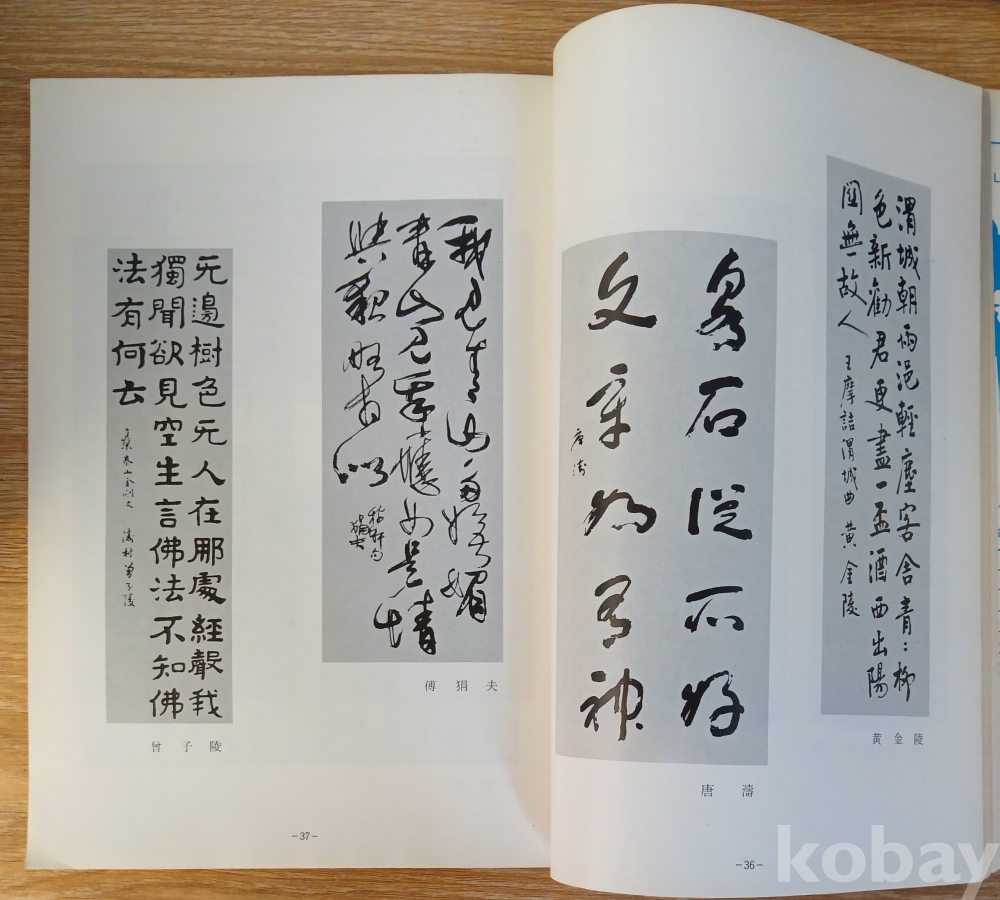 渭城朝雨浥輕塵客舍青:柳
色新勸君更盡一盃酒西出陽
關無故人 王摩詰渭城曲 黃金陵
黃金陵
石從所好
文章有神
唐濤
唐濤
-36-
我見青山多嫵媚
青山見我應如是情
與貌略相似
稼軒句
狷夫
傅狷夫
无邊樹色无人在那處經聲我
獨聞欲見空生言佛法不知佛
法有何云
泰山金剛文 村曾子陵
曾子陵
-37-
kobay